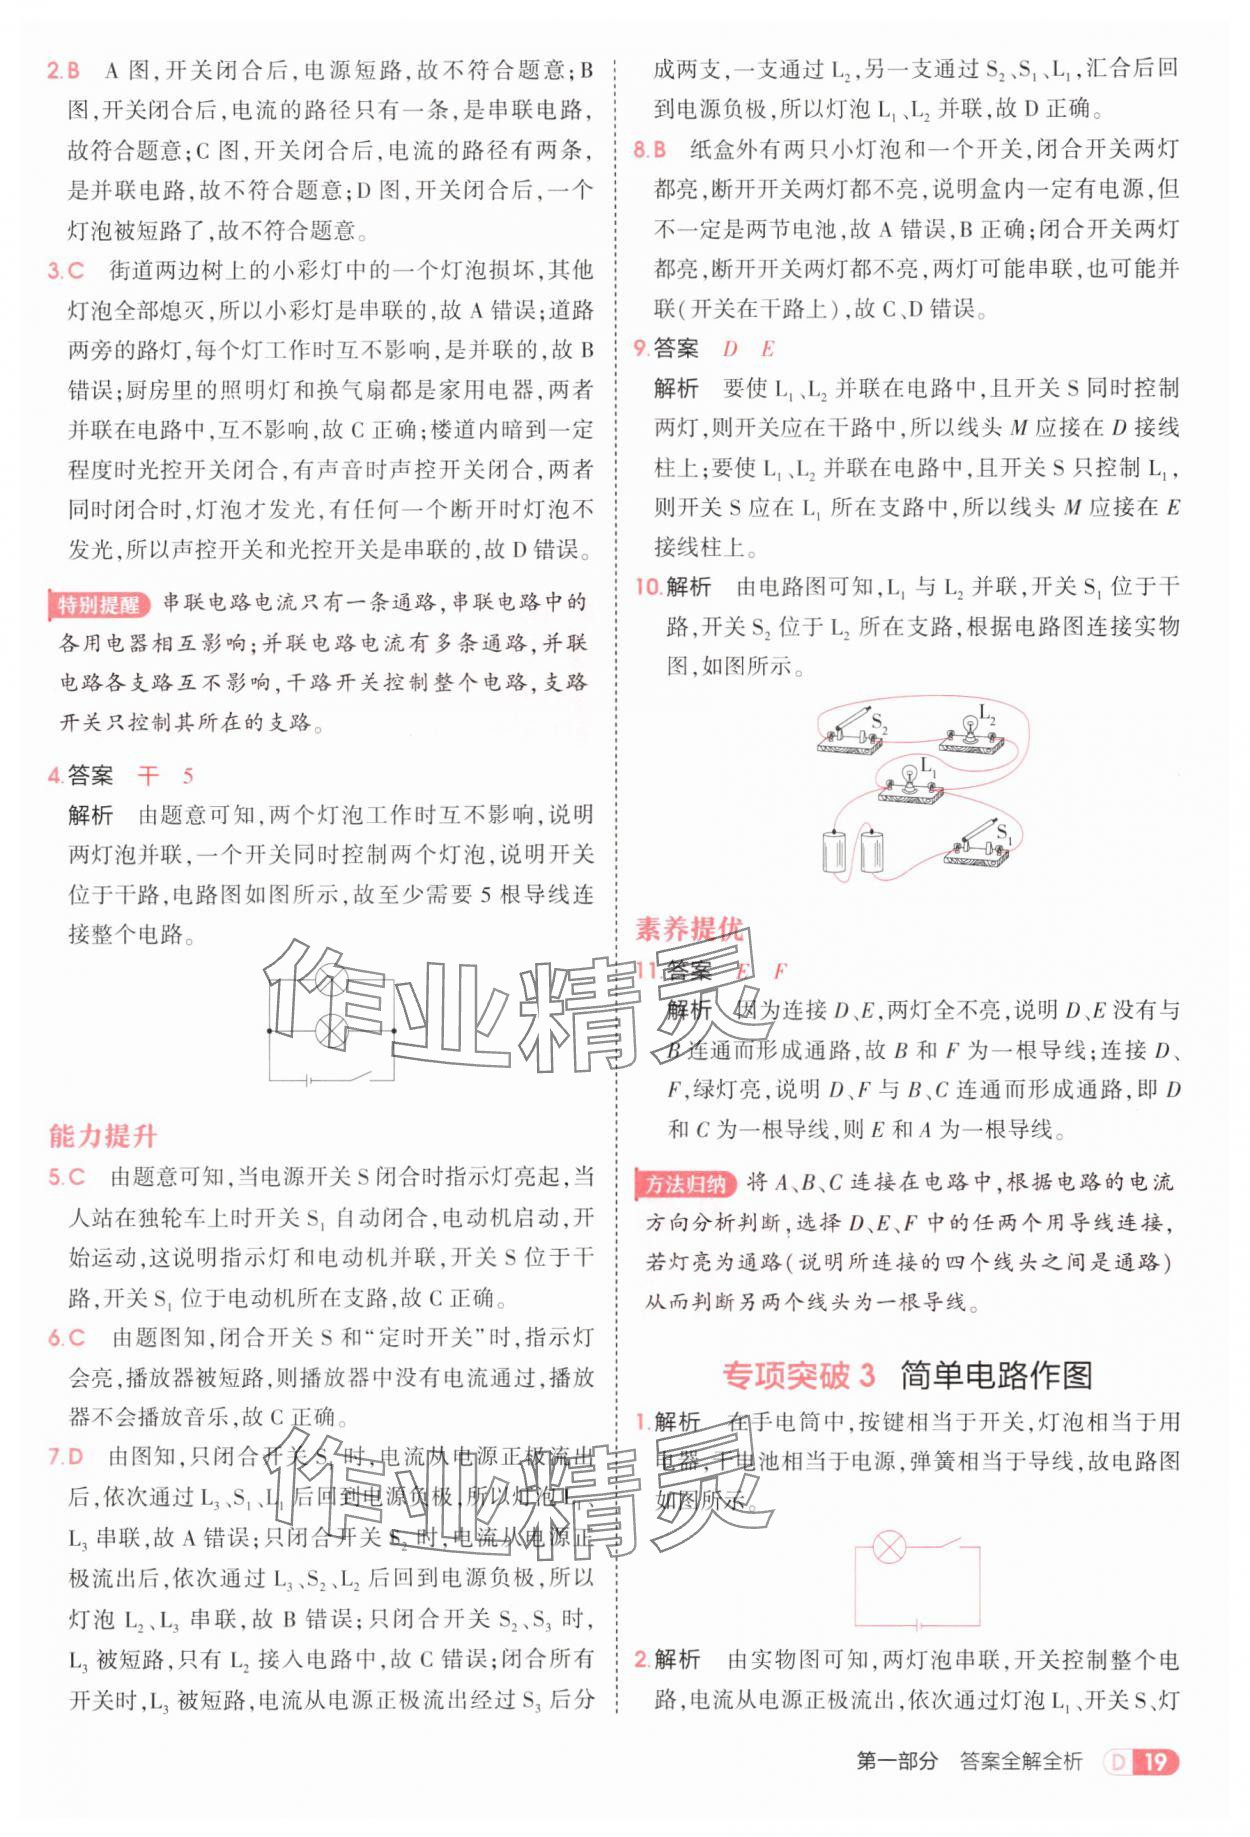 2.B　A 图,开关闭合后,电源短路,故不符合题意;B
图,开关闭合后,电流的路径只有一条,是串联电路,
故符合题意;C 图,开关闭合后,电流的路径有两条,
是并联电路,故不符合题意;D 图,开关闭合后,一个
灯泡被短路了,故不符合题意。
3.C　街道两边树上的小彩灯中的一个灯泡损坏,其他
灯泡全部熄灭,所以小彩灯是串联的,故 A 错误;道路
两旁的路灯,每个灯工作时互不影响,是并联的,故 B
错误;厨房里的照明灯和换气扇都是家用电器,两者
并联在电路中,互不影响,故 C 正确;楼道内暗到一定
程度时光控开关闭合,有声音时声控开关闭合,两者
同时闭合时,灯泡才发光,有任何一个断开时灯泡不
发光,所以声控开关和光控开关是串联的,故 D 错误。
特别提醒　串联电路电流只有一条通路,串联电路中的
各用电器相互影响;并联电路电流有多条通路,并联
电路各支路互不影响,干路开关控制整个电路,支路
开关只控制其所在的支路。
4.答案　干　5
解析　由题意可知,两个灯泡工作时互不影响,说明
两灯泡并联,一个开关同时控制两个灯泡,说明开关
位于干路,电路图如图所示,故至少需要 5 根导线连
接整个电路。
能力提升
5.C　由题意可知,当电源开关 S 闭合时指示灯亮起,当
人站在独轮车上时开关 S₁ 自动闭合,电动机启动,开
始运动,这说明指示灯和电动机并联,开关 S 位于干
路,开关 S₁ 位于电动机所在支路,故 C 正确。
6.C　由题图知,闭合开关 S 和“定时开关”时,指示灯
会亮,播放器被短路,则播放器中没有电流通过,播放
器不会播放音乐,故 C 正确。
7.D　由图知,只闭合开关 S₁ 时,电流从电源正极流出
后,依次通过 L₃、S₁、L₁ 后回到电源负极,所以灯泡 L₁、
L₃ 串联,故 A 错误;只闭合开关 S₂ 时,电流从电源正
极流出后,依次通过 L₃、S₂、L₂ 后回到电源负极,所以
灯泡 L₂、L₃ 串联,故 B 错误;只闭合开关 S₂、S₃ 时,
L₃ 被短路,只有 L₂ 接入电路中,故 C 错误;闭合所有
开关时,L₃ 被短路,电流从电源正极流出经过 S₃ 后分
成两支,一支通过 L₂,另一支通过 S₂、S₁、L₁,汇合后回
到电源负极,所以灯泡 L₁、L₂ 并联,故 D 正确。
8.B　纸盒外有两只小灯泡和一个开关,闭合开关两灯
都亮,断开开关两灯都不亮,说明盒内一定有电源,但
不一定是两节电池,故 A 错误,B 正确;闭合开关两灯
都亮,断开开关两灯都不亮,两灯可能串联,也可能并
联(开关在干路上),故 C、D 错误。
9.答案　D　E
解析　要使 L₁、L₂ 并联在电路中,且开关 S 同时控制
两灯,则开关应在干路中,所以线头 M 应接在 D 接线
柱上;要使 L₁、L₂ 并联在电路中,且开关 S 只控制 L₁,
则开关 S 应在 L₁ 所在支路中,所以线头 M 应接在 E
接线柱上。
10.解析　由电路图可知,L₁ 与 L₂ 并联,开关 S₁ 位于干
路,开关 S₂ 位于 L₂ 所在支路,根据电路图连接实物
图,如图所示。
S₂
L₂
L₁
S₁
素养提优
11.答案　E　F
解析　因为连接 D、E,两灯全不亮,说明 D、E 没有与
B 连通而形成通路,故 B 和 F 为一根导线;连接 D、
F,绿灯亮,说明 D、F 与 B、C 连通而形成通路,即 D
和 C 为一根导线,则 E 和 A 为一根导线。
方法归纳　将 A、B、C 连接在电路中,根据电路的电流
方向分析判断,选择 D、E、F 中的任两个用导线连接,
若灯亮为通路(说明所连接的四个线头之间是通路)
从而判断另两个线头为一根导线。
专项突破 3　简单电路作图
1.解析　在手电筒中,按键相当于开关,灯泡相当于用
电器,干电池相当于电源,弹簧相当于导线,故电路图
如图所示。
2.解析　由实物图可知,两灯泡串联,开关控制整个电
路,电流从电源正极流出,依次通过灯泡 L₁、开关 S、灯
第一部分　答案全解全析　D 19
作业精灵
作业精灵